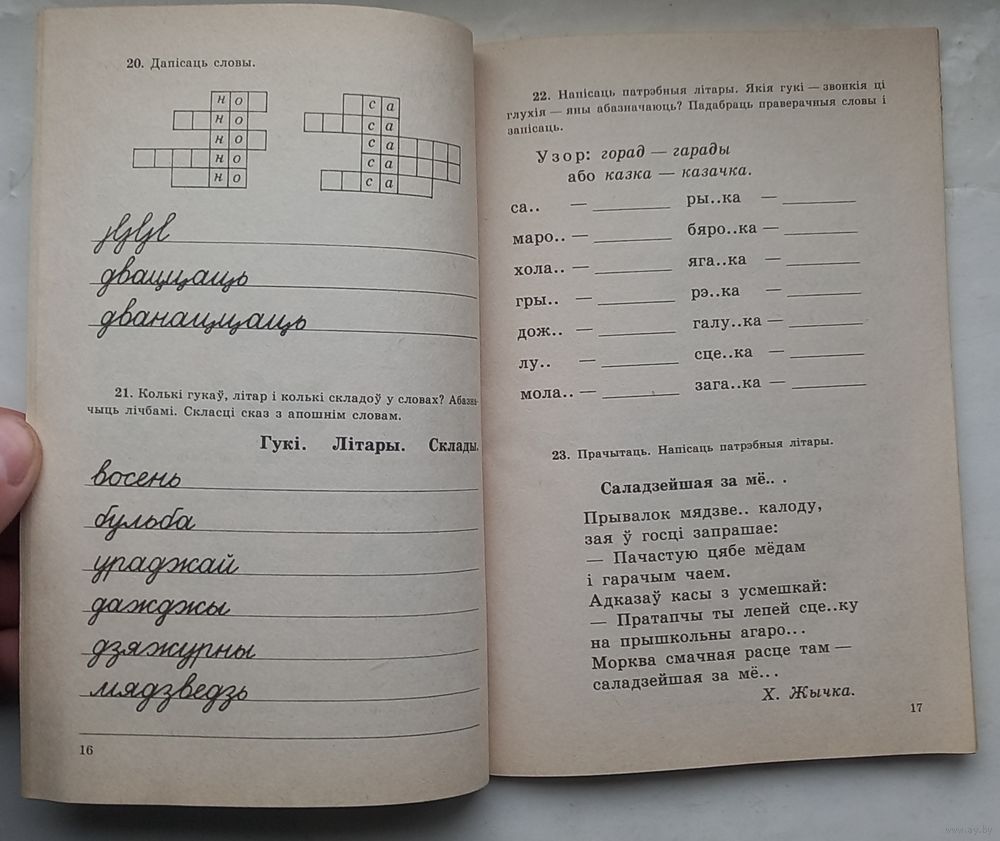 20. Дапісаць словы.
н о
н о
н о
н о
н о
с а
с а
с а
с а
с а
двaццаць
дванаццаць
21. Колькі гукаў, літар і колькі складоў у словах? Абазна-
чыць лічбамі. Скласці сказ з апошнім словам.
Гукі. Літары. Склады.
восень
бульба
ураджай
дажджы
дзяжурны
мядзведзь
16
22. Напісаць патрэбныя літары. Якія гукі — звонкія ці
глухія — яны абазначаюць? Падабраць праверачныя словы і
запісаць.
Узор: горад — гарады
або казка — казачка.
са.. — ры..ка —
маро.. — бяро..ка —
хола.. — яга..ка —
гры.. — рэ..ка —
дож.. — галу..ка —
лу.. — сце..ка —
мола.. — зага..ка —
23. Прачытаць. Напісаць патрэбныя літары.
Саладзейшая за мё.. .
Прывалок мядзве.. калоду,
зая ў госці запрашае:
— Пачастую цябе мёдам
і гарачым чаем.
Адказаў касы з усмешкай:
— Пратапчы ты лепей сце..ку
на прышкольны агаро...
Морква смачная расце там —
саладзейшая за мё...
Х. Жычка.
17
www.ay.by